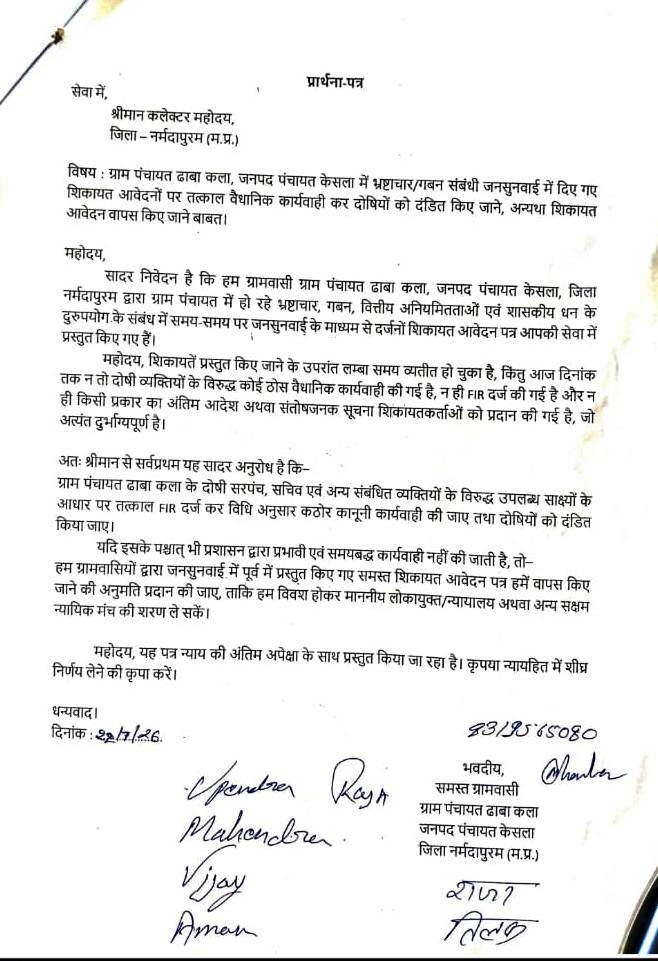 प्रार्थना-पत्र
सेवा में,
श्रीमान कलेक्टर महोदय,
जिला – नर्मदापुरम (म.प्र.)
विषय : ग्राम पंचायत ढाबा कला, जनपद पंचायत केसला में भ्रष्टाचार/गबन संबंधी जनसुनवाई में दिए गए
शिकायत आवेदनों पर तत्काल वैधानिक कार्यवाही कर दोषियों को दंडित किए जाने, अन्यथा शिकायत
आवेदन वापस किए जाने बाबत।
महोदय,
सादर निवेदन है कि हम ग्रामवासी ग्राम पंचायत ढाबा कला, जनपद पंचायत केसला, जिला
नर्मदापुरम द्वारा ग्राम पंचायत में हो रहे भ्रष्टाचार, गबन, वित्तीय अनियमितताओं एवं शासकीय धन के
दुरुपयोग के संबंध में समय-समय पर जनसुनवाई के माध्यम से दर्जनों शिकायत आवेदन पत्र आपकी सेवा में
प्रस्तुत किए गए हैं।
महोदय, शिकायतें प्रस्तुत किए जाने के उपरांत लम्बा समय व्यतीत हो चुका है, किंतु आज दिनांक
तक न तो दोषी व्यक्तियों के विरुद्ध कोई ठोस वैधानिक कार्यवाही की गई है, न ही FIR दर्ज की गई है और न
ही किसी प्रकार का अंतिम आदेश अथवा संतोषजनक सूचना शिकायतकर्ताओं को प्रदान की गई है, जो
अत्यंत दुर्भाग्यपूर्ण है।
अतः श्रीमान से सर्वप्रथम यह सादर अनुरोध है कि–
ग्राम पंचायत ढाबा कला के दोषी सरपंच, सचिव एवं अन्य संबंधित व्यक्तियों के विरुद्ध उपलब्ध साक्ष्यों के
आधार पर तत्काल FIR दर्ज कर विधि अनुसार कठोर कानूनी कार्यवाही की जाए तथा दोषियों को दंडित
किया जाए।
यदि इसके पश्चात् भी प्रशासन द्वारा प्रभावी एवं समयबद्ध कार्यवाही नहीं की जाती है, तो–
हम ग्रामवासियों द्वारा जनसुनवाई में पूर्व में प्रस्तुत किए गए समस्त शिकायत आवेदन पत्र हमें वापस किए
जाने की अनुमति प्रदान की जाए, ताकि हम विवश होकर माननीय लोकायुक्त/न्यायालय अथवा अन्य सक्षम
न्यायिक मंच की शरण ले सकें।
महोदय, यह पत्र न्याय की अंतिम अपेक्षा के साथ प्रस्तुत किया जा रहा है। कृपया न्यायहित में शीघ्र
निर्णय लेने की कृपा करें।
धन्यवाद।
दिनांक : 22/7/26
भवदीय,
समस्त ग्रामवासी
ग्राम पंचायत ढाबा कला
जनपद पंचायत केसला
जिला नर्मदापुरम (म.प्र.)
Upendra
Mahendra
Vijay
Aman
राजा
तिलक